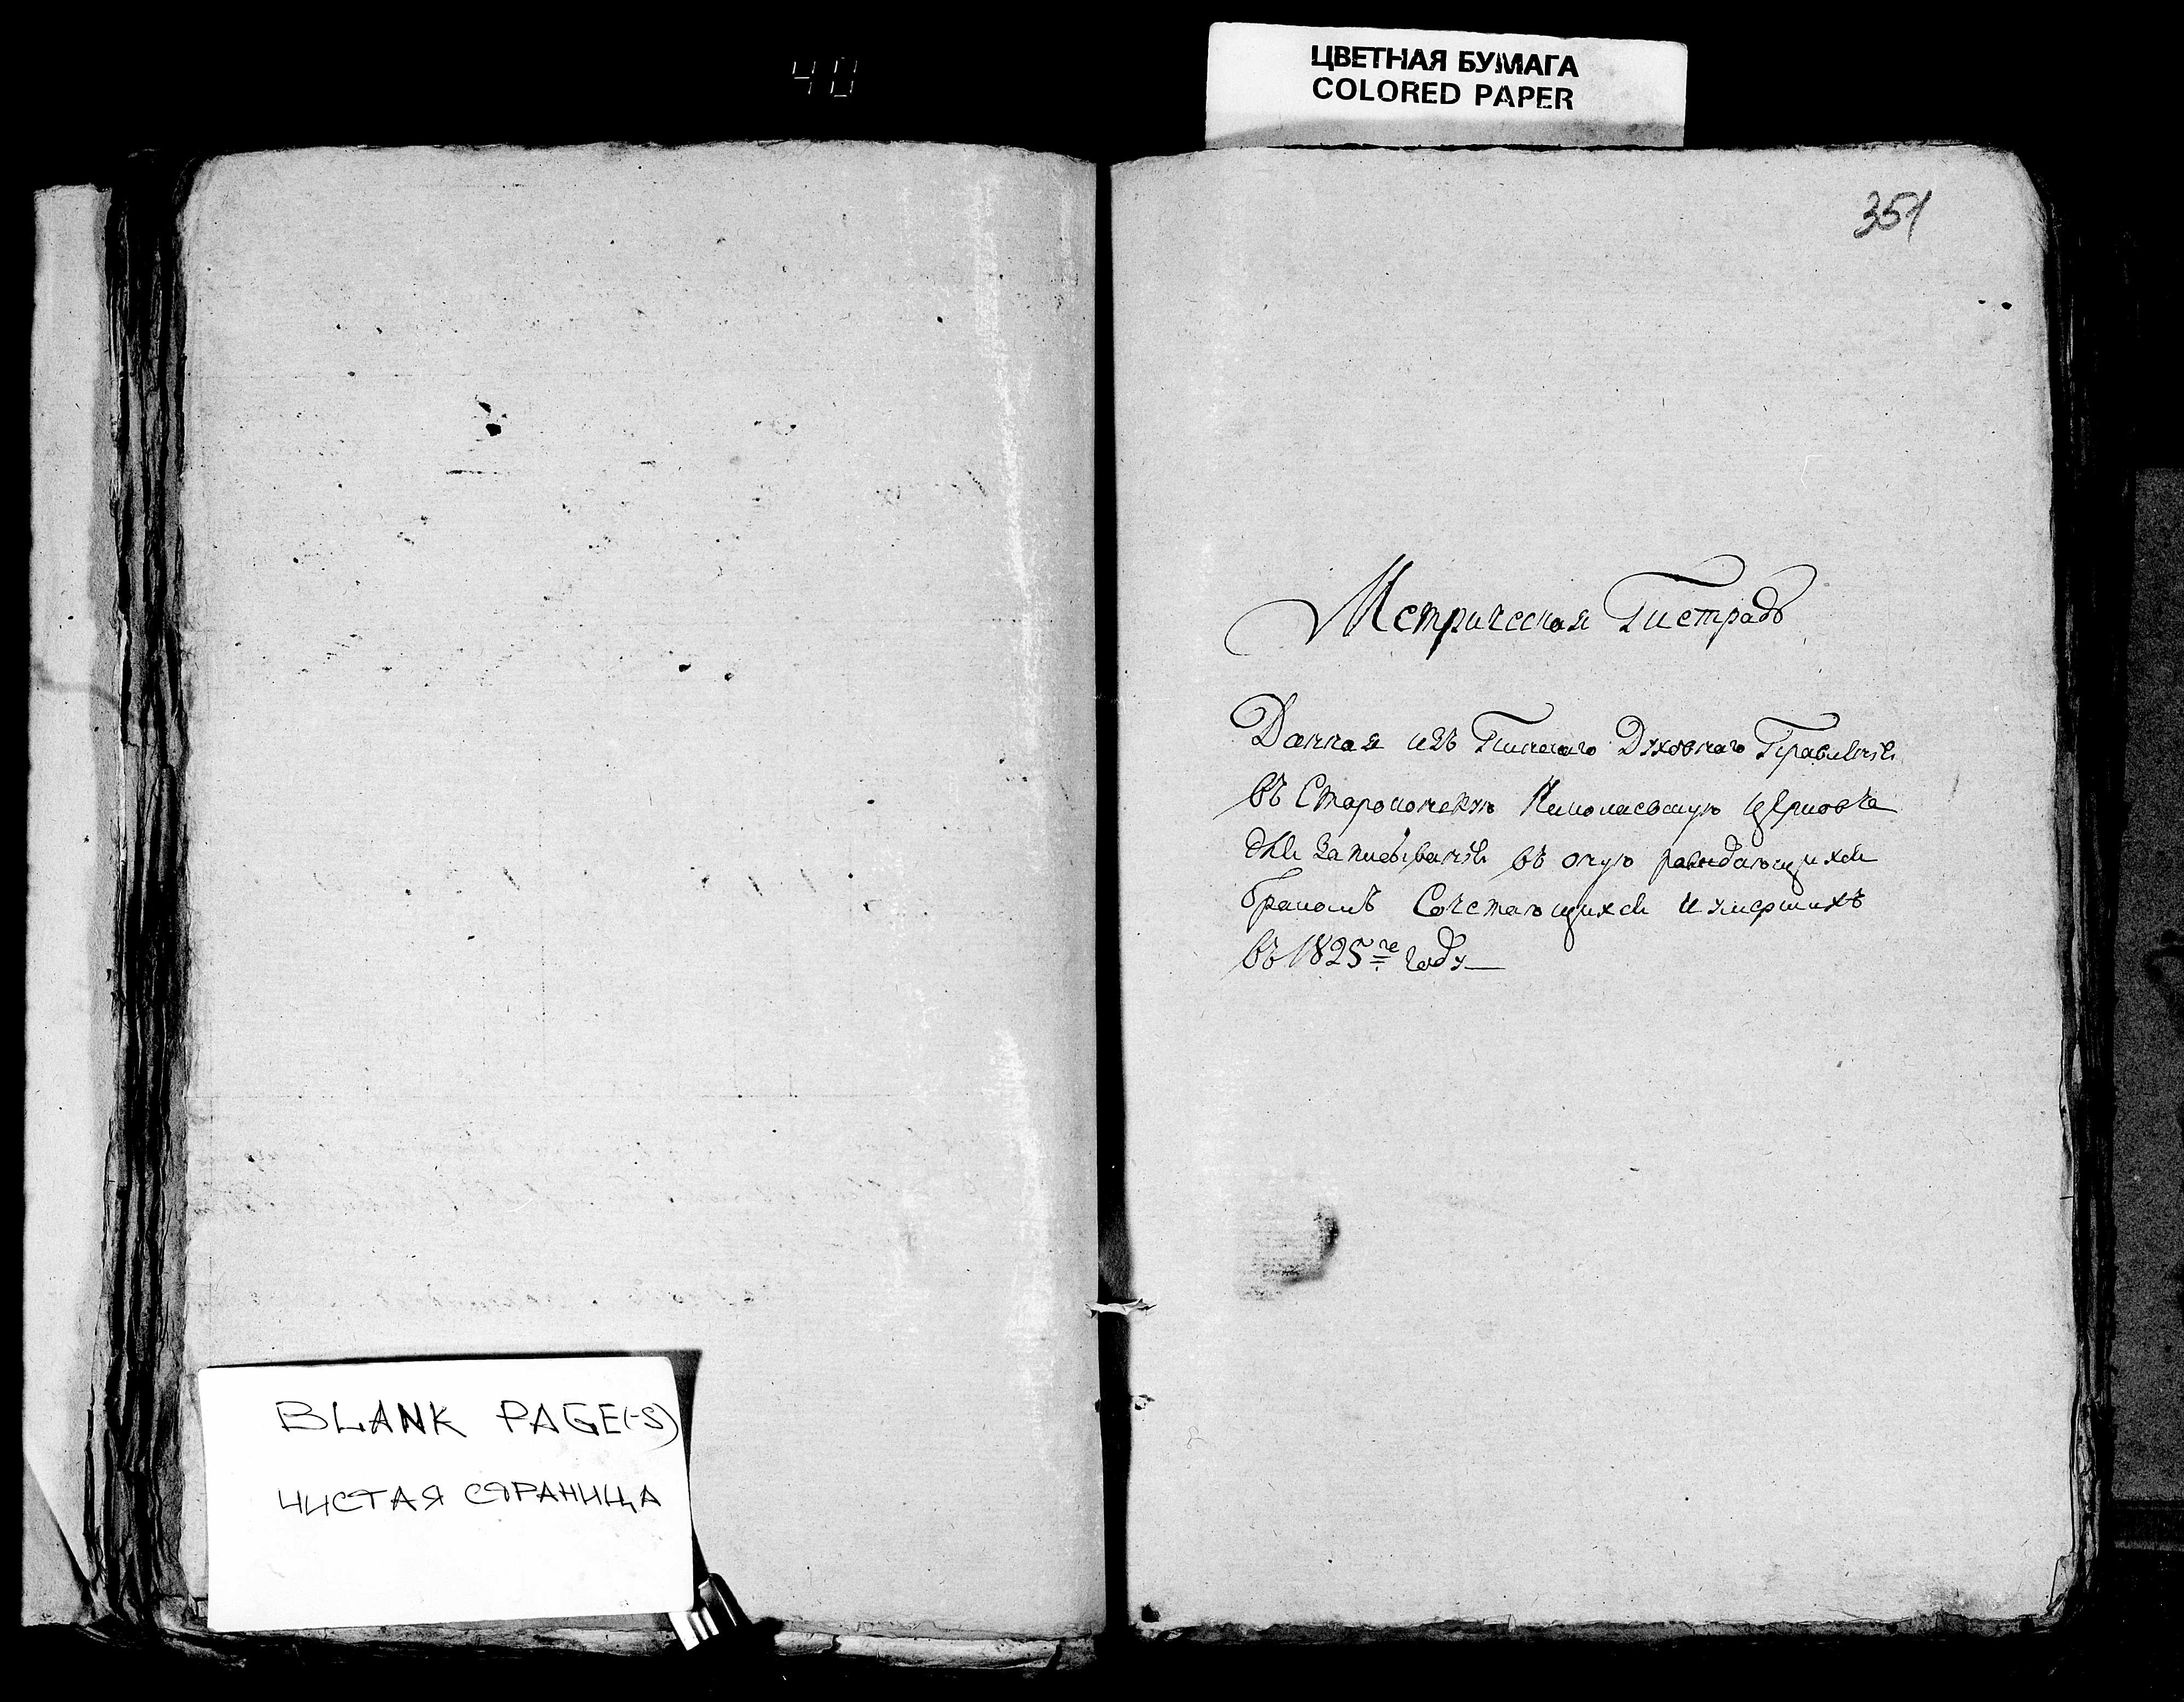 40
ЦВЕТНАЯ БУМАГА
COLORED PAPER
351
Метрическая Тетрадь
Данная изъ Пинскаго Духовнаго Правленія
въ Николаевскую Церковь
для Записыванія въ оную раждающихся
бракомъ Сочетающихся и умершихъ
въ 1825 году
BLANK PAGE(-S)
ЧИСТАЯ СТРАНИЦА